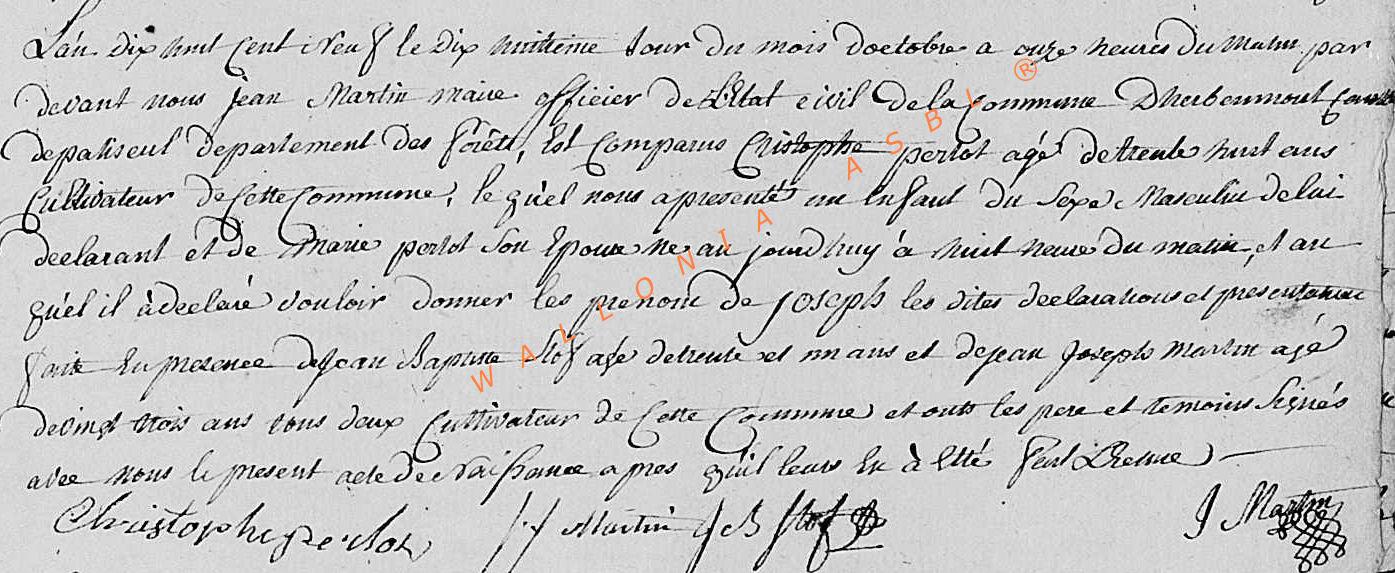 L'an Dix huit cent Neuf le Dix huitieme Jour du mois doctobre a onze heures du Matin par
devant nous Jean Martin maire officier de L'Etat civil de la commune Dherbeumont
depaliseul departement des forêts, Est comparus Cristophe perlot agé de trente huit ans
Cultivateur de Cette Commune, le quel nous a presenté un Enfant du Sexe Masculin de lui
declarant et de Marie perlot Son Epouse né au jourdhuy à huit heure du matin, et au
quel il à declaré vouloir donner les prenom de Joseph les dites declarations et presentation
faite En presence de Jean Baptiste Stof agé de trente et un ans et de jean Joseph Martin agé
de vingt trois ans tous deux Cultivateur de Cette Commune et onts les pere et temoins Signés
avec nous le present acte de Naissance apres quil leurs En à Etté fait
Christophe perlot J J Martin J B Stof J Martin
WALLONIA ASBL ®